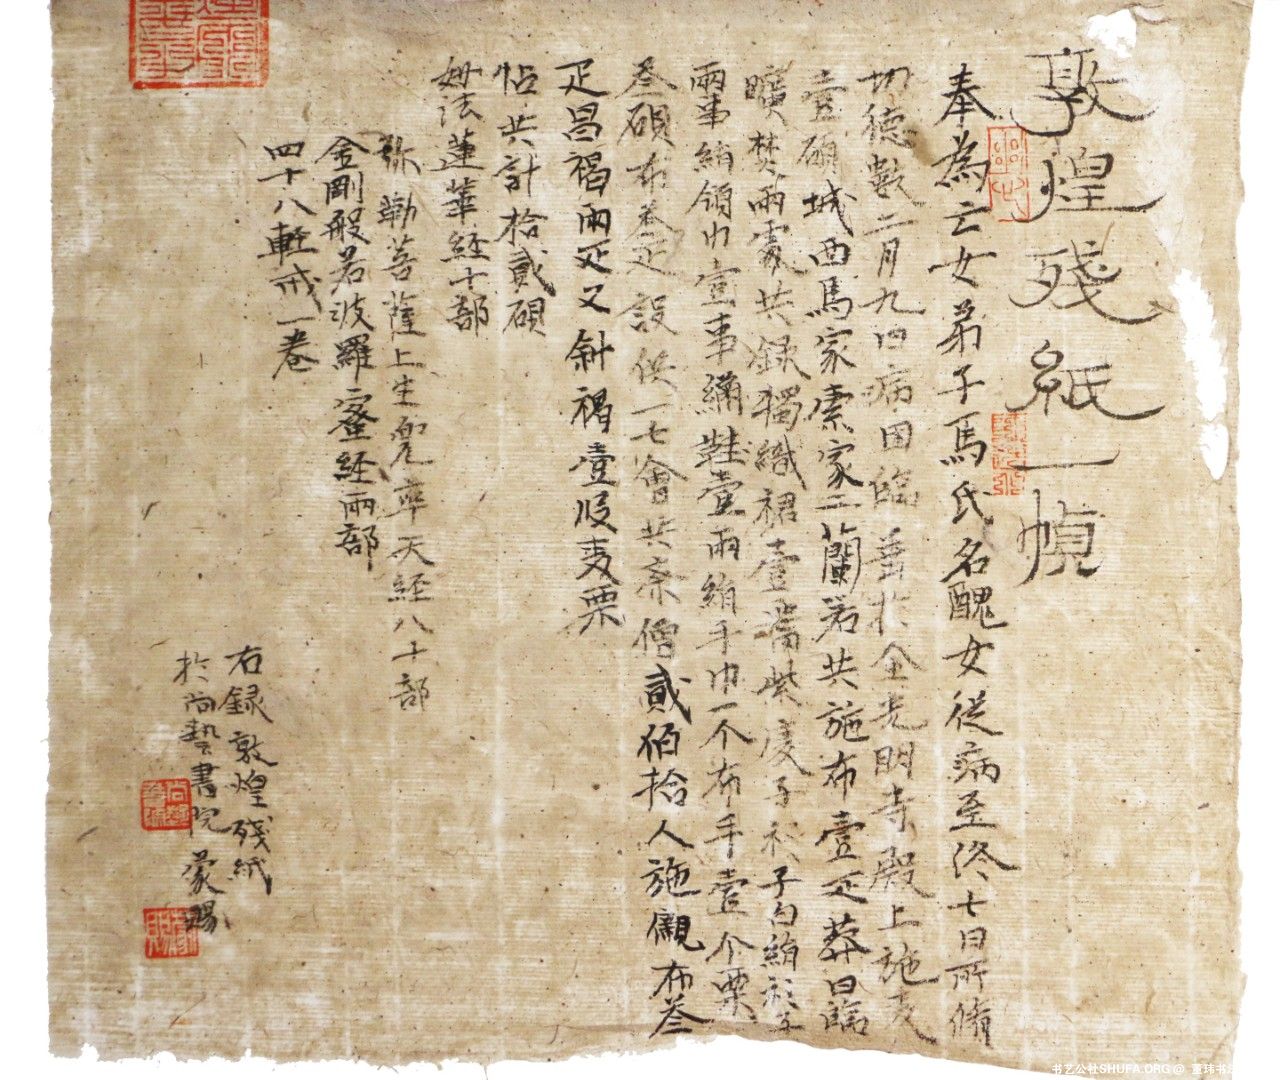 敦煌殘紙一幀
奉為亡女弟子馬氏名醜女從病至終七日所脩
切德數二月九日病困臨善於金光明寺殿上施麦
壹碩城西馬家索家二蘭若共施布壹疋葬日臨
曠焚兩處共錄獨織裙壹腰紫 子衫子白絹
兩事絹領巾壹事繡鞋壹兩絹手巾一个布手壹个粟
叁碩布叁疋設供一七會共齋僧貳伯拾人施儭布叁
疋昌褐兩疋又斜褐壹段麦粟
帖共計拾貳碩
妙法蓮華經十部
弥勒菩薩上生兜率天經八十部
金剛般若波羅蜜經兩部
四十八輕戒一卷
右録敦煌殘紙
於尚藝書院蒙賜
书艺公社SHUFA.ORG @ 董玮书法